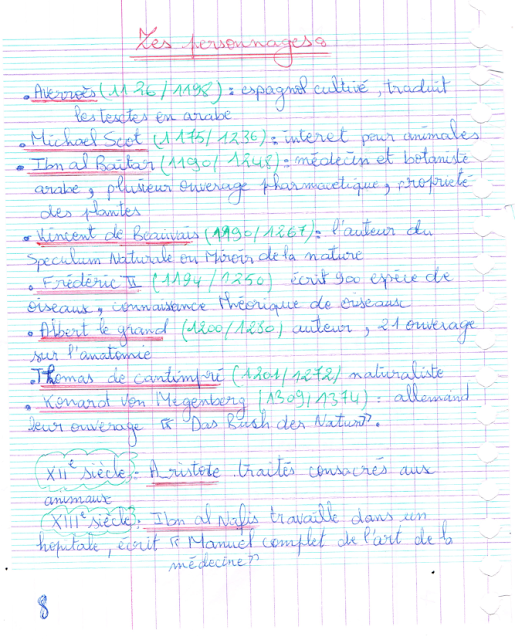 Les personnages :
• Averroès (1126/1198) : espagnol cultivé, traduit
les textes en arabe
• Michael Scot (1175/1236) : interet pour animales
• Ibn al Baytar (1190/1248) : médecin et botaniste
arabe, plusieur ouverage pharmacetique, proprieté
des plantes
• Vincent de Beauvais (1190/1267) : l'auteur du
Speculum Naturale ou Miroir de la nature
• Frédéric II (1194/1250) écrit 900 espèce de
oiseaux, connaissance théorique de oiseaux
• Albert le grand (1200/1280) auteur, 21 ouverage
sur l'anatomie
• Thomas de cantimpré (1201/1272/ naturaliste
• Konard von Megenberg (1309/1374) : allemand
leur ouverage « Das Bush der Natur».
XIIe siècle : Aristote traités consacrés aux
animaux
XIIIe siècle : Ibn al Nafis travaille dans un
hopitale, écrit « Manuel complet de l'art de la
médecine »
8